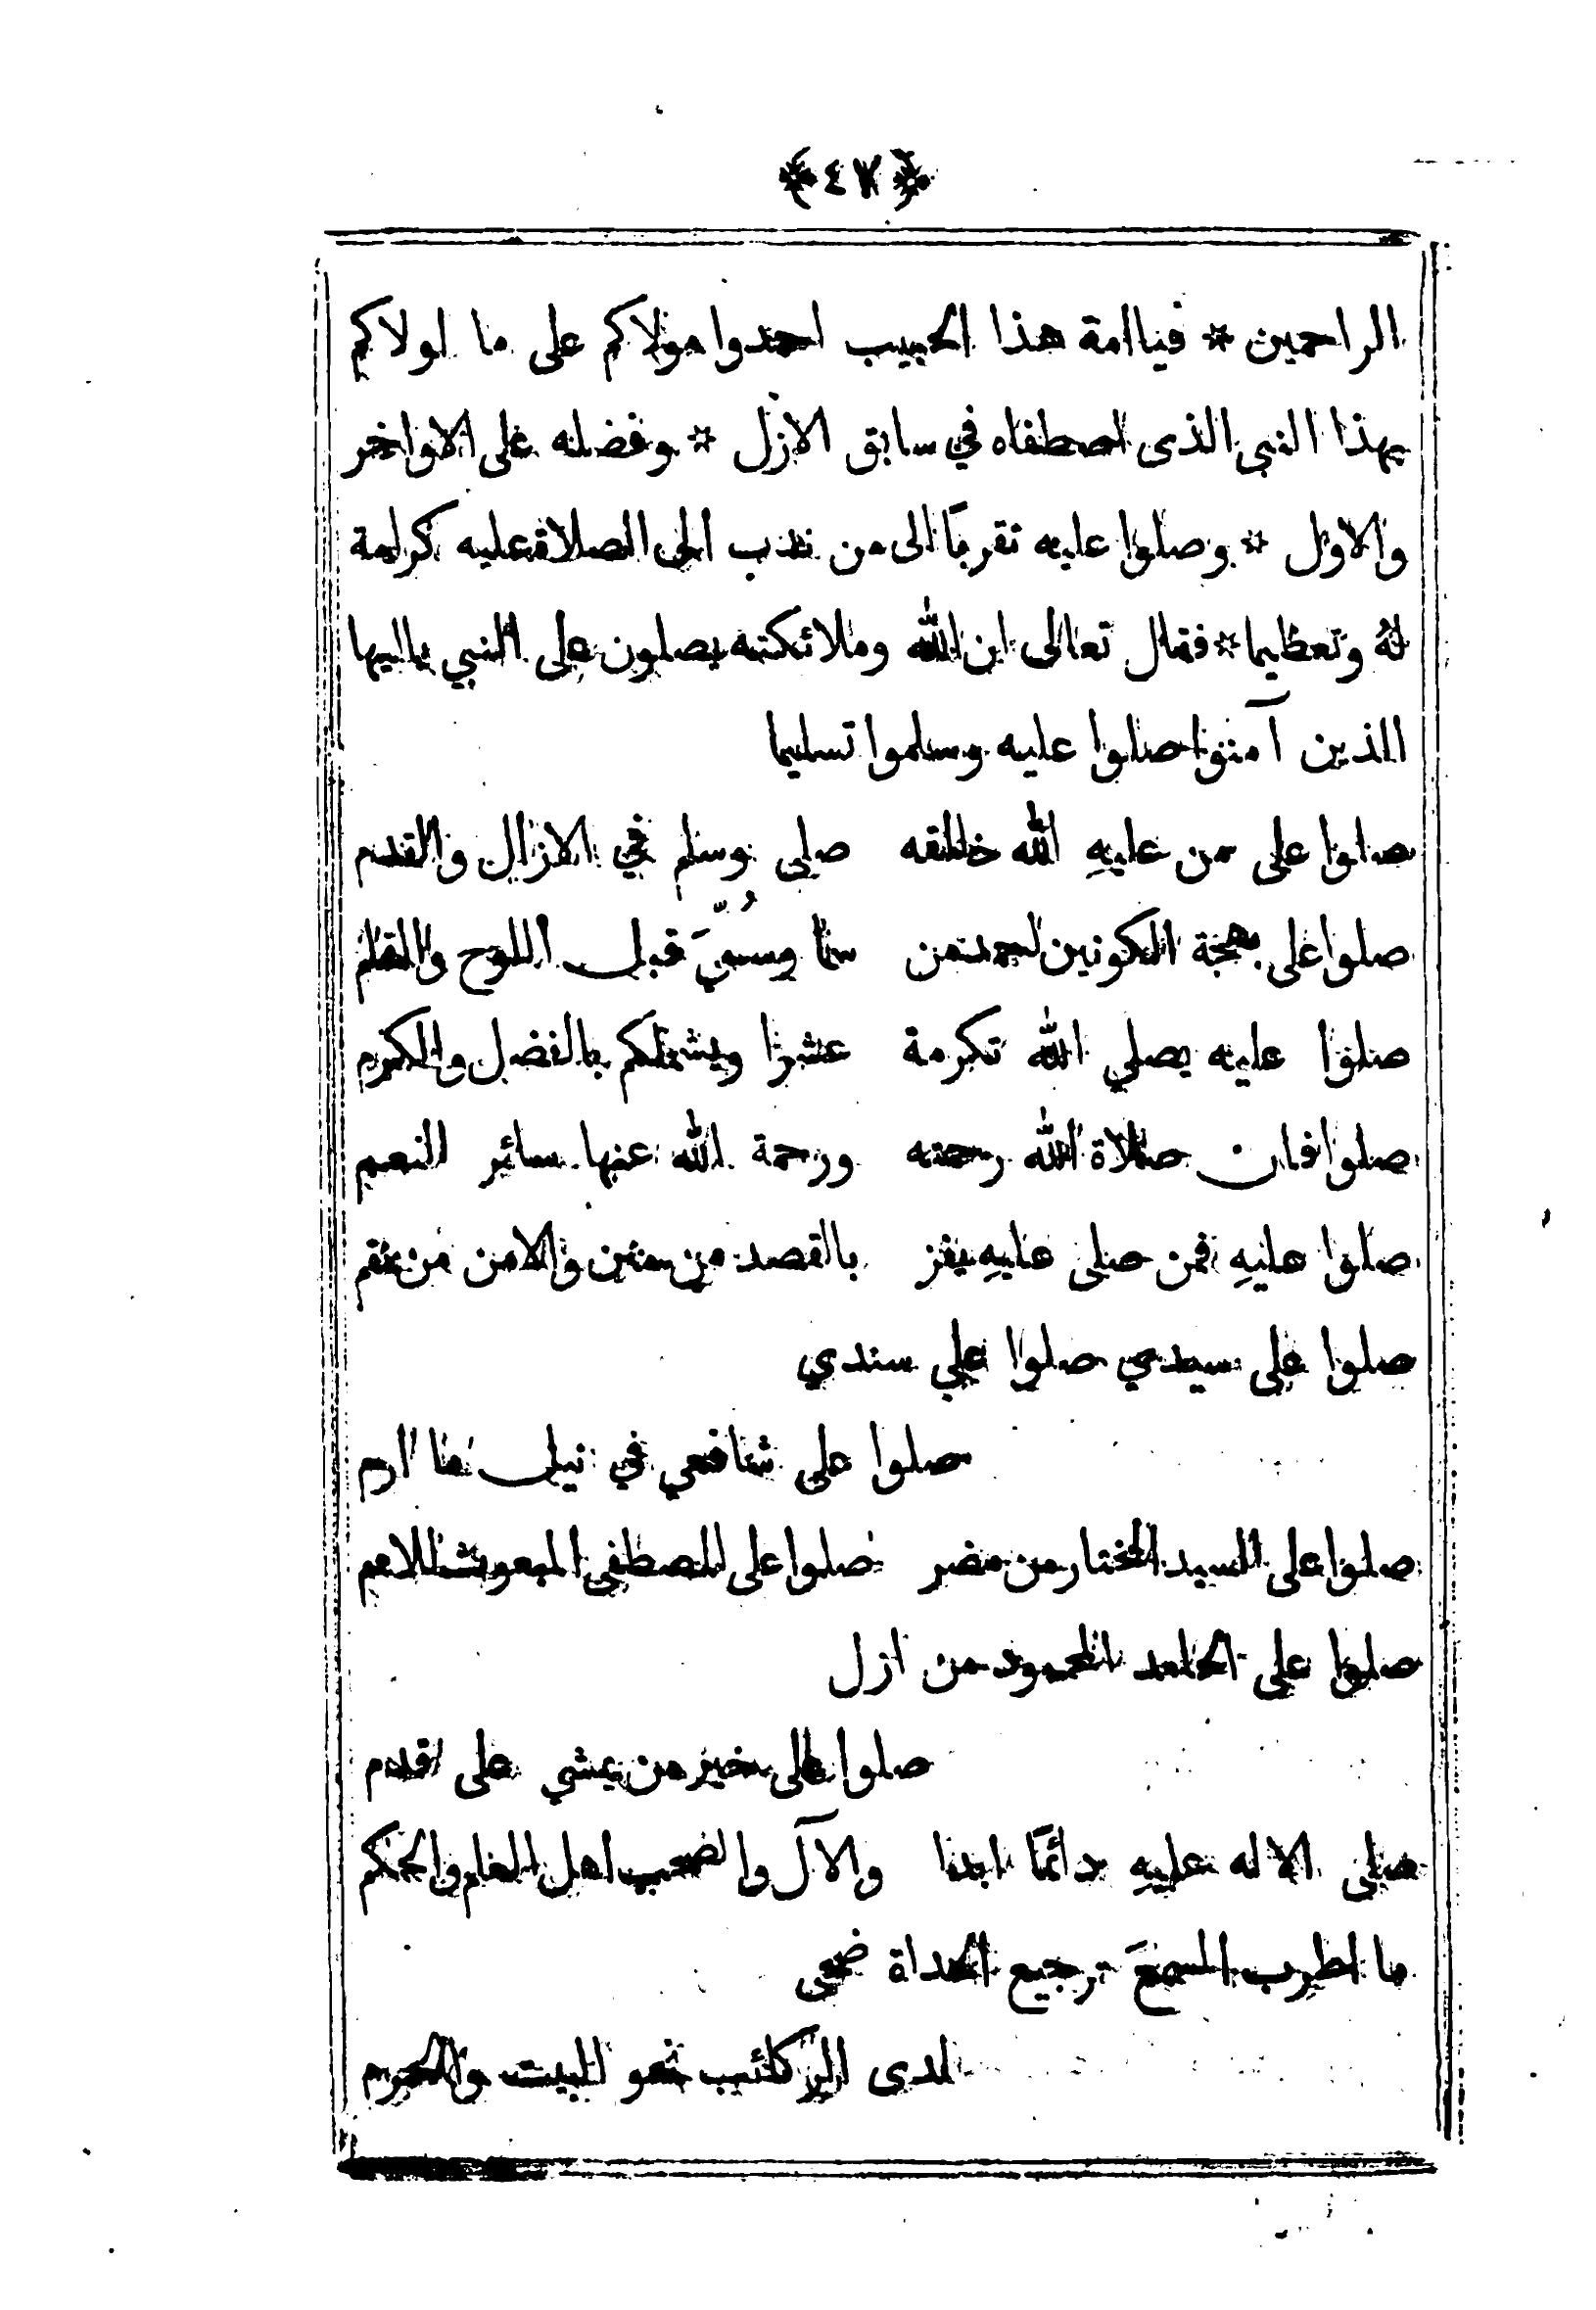 ﴿٤٧﴾
الراحمين * فياامة هذا الحبيب احمدوا مولاكم على ما اولاكم
بهذا النبي الذى اصطفاه في سابق الازل * وفضله على الاواخر
والاول * وصلوا عليه تقربًا الى من ندب الى الصلاة عليه كرامة
لهُ وتعظيما * فقال تعالى ان الله وملائكته يصلون على النبي ياايها
الذين آمنوا صلوا عليه وسلموا تسليما
صلوا على من عليهِ الله خالقه صلى وسلم في الازال والقدم
صلوا على بهجة الكونين احمد من سما وسُمّيَ قبل اللوح والقلم
صلوا عليه يصلي الله تكرمة عشرا ويشملكم بالفضل والكرم
صلوا فان صلاة الله رحمته ورحمة الله عنها سائر النعم
صلوا عليهِ فمن صلى عليهِ يفز بالقصد من والامن من نقم
صلوا على سيدي صلوا على سندي
صلوا على شافعي في نيل ما ارم
صلوا على السيد المختار من مضر صلوا على المصطفى المبعوث للامم
صلوا على الحامد المحمود من ازل
صلوا على خير من يمشي على قدم
صلى الاله عليهِ دائمًا ابدا والآل والصحب اهل العلم والحكم
ما اطرب السمعَ ترجيع الحداة ضحى
لدى الركائب نحو البيت والحرم